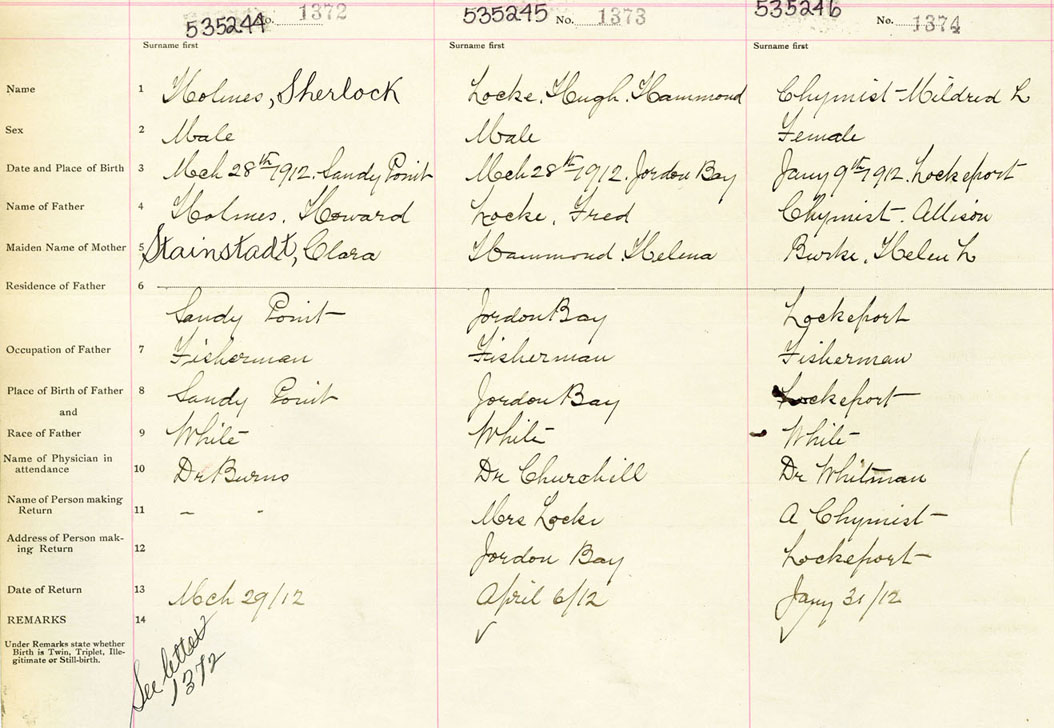 535244 No. 1372 535245 No. 1373 535246 No. 1374
Surname first Surname first Surname first
Name 1 Holmes, Sherlock Locke, Hugh Hammond Chymist Mildred L
Sex 2 Male Male Female
Date and Place of Birth 3 Mch 28th 1912. Sandy Point Mch 28th 1912. Jordon Bay Jany 9th 1912. Lockeport
Name of Father 4 Holmes, Howard Locke, Fred Chymist, Allison
Maiden Name of Mother 5 Stainstadt, Clara Hammond, Helena Burke, Helen L
Residence of Father 6
Sandy Point Jordon Bay Lockeport
Occupation of Father 7 Fisherman Fisherman Fisherman
Place of Birth of Father 8 Sandy Point Jordon Bay Lockeport
and
Race of Father 9 White White White
Name of Physician in
attendance 10 Dr Burns Dr Churchill Dr Whitman
Name of Person making
Return 11 – - Mrs Locke A Chymist
Address of Person mak-
ing Return 12 Jordon Bay Lockeport
Date of Return 13 Mch 29/12 April 6/12 Jany 31/12
REMARKS 14
Under Remarks state whether
Birth is Twin, Triplet, Ille-
gitimate or Still-birth.
See letter
1372